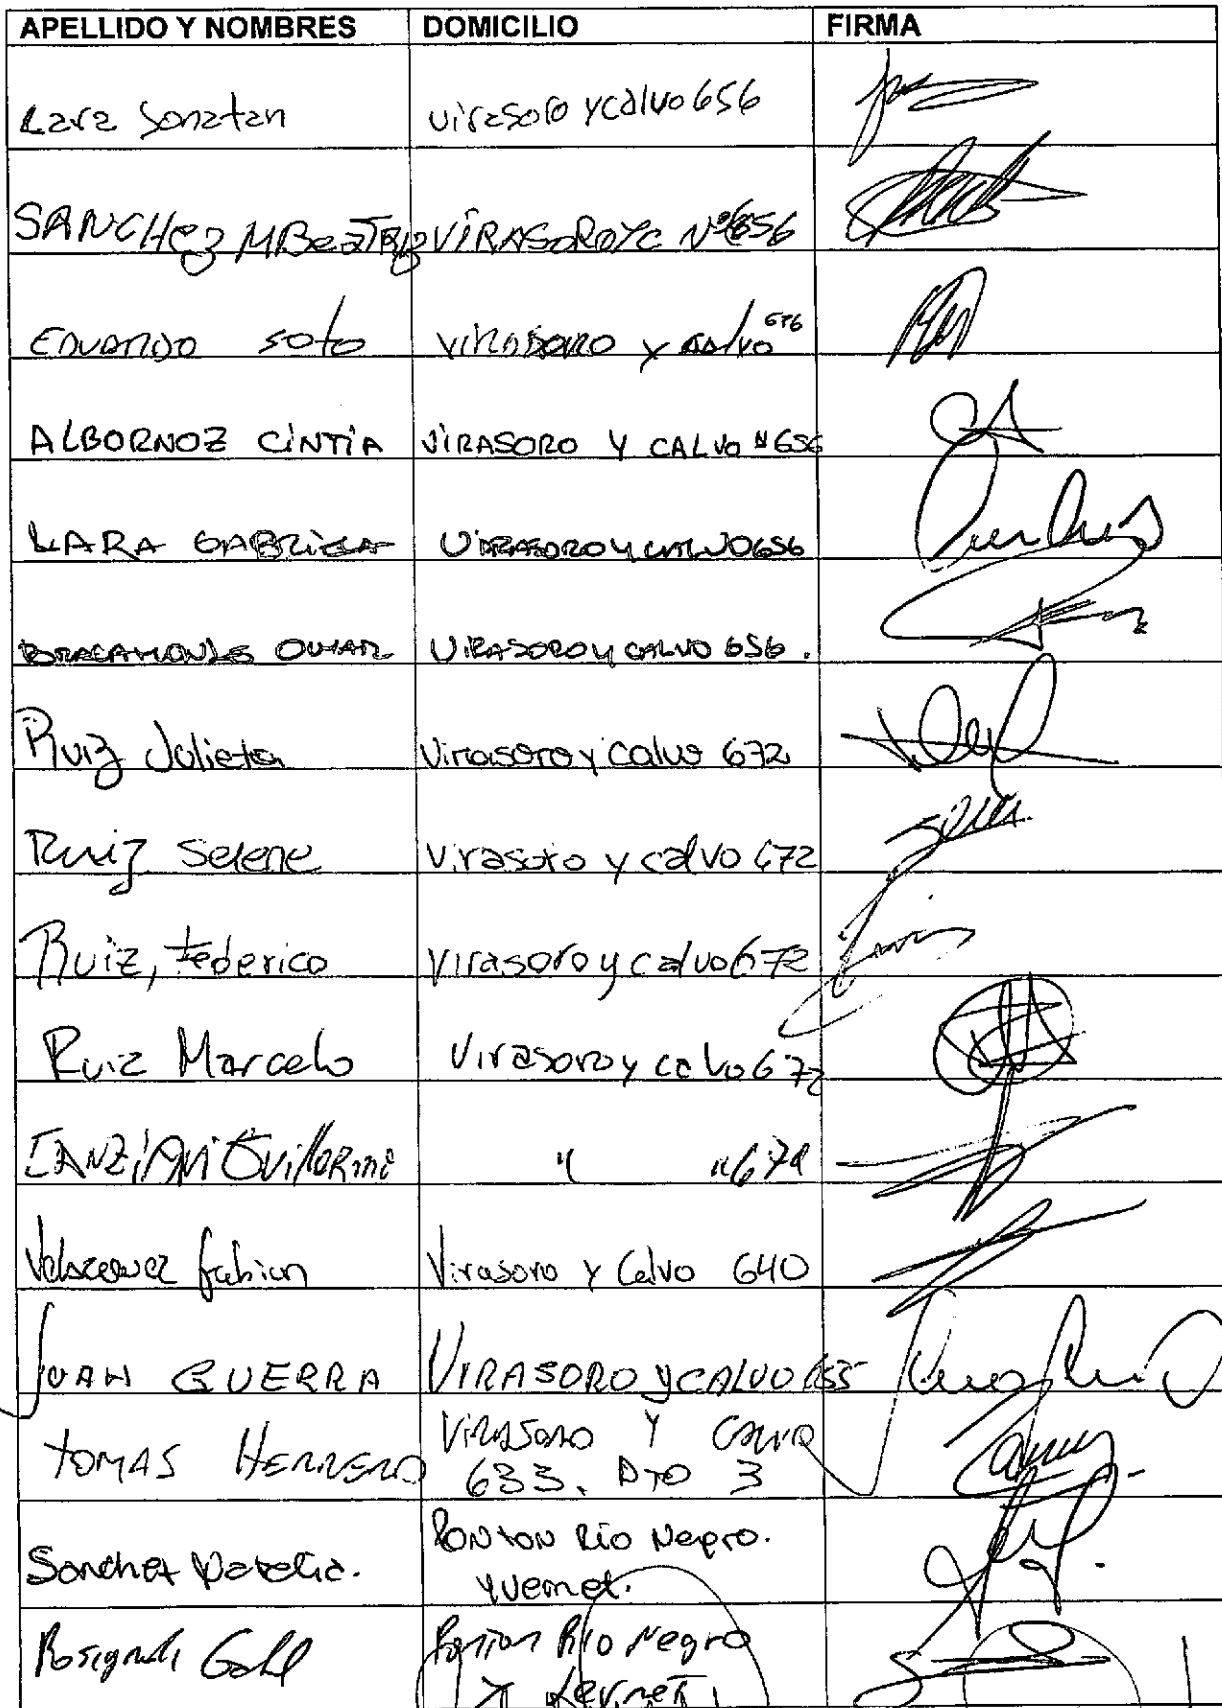 APELLIDO Y NOMBRES DOMICILIO FIRMA
Lara Jonatan Virasoro y calvo 656
SANCHez MBeaTRiz VIRASOROYC Nº 656
EDUARDO soto VIRASORO y calvo 656
ALBORNOZ CiNTiA ViRASORO Y CALVO Nº656
LARA GABRIELA VIRASORO y CALVO 656
BRACAMONTE OMAR VIRASORO y CALVO 656.
Ruiz Julieta Virasoro y Calvo 672
Ruiz Selene Virasoro y calvo 672
Ruiz, Federico Virasoro y calvo 672
Ruiz Marcelo Virasoro y calvo 672
Guillermo " "
Fabian Virasoro y Calvo 640
JUAN GUERRA VIRASORO y CALVO 655
TOMAS HERRERO VIRASORO Y CALVO
633. DTO 3
Sanchez Natalia. Ponton Río Negro.
y Vernet.
Ponton Río Negro
y Vernet